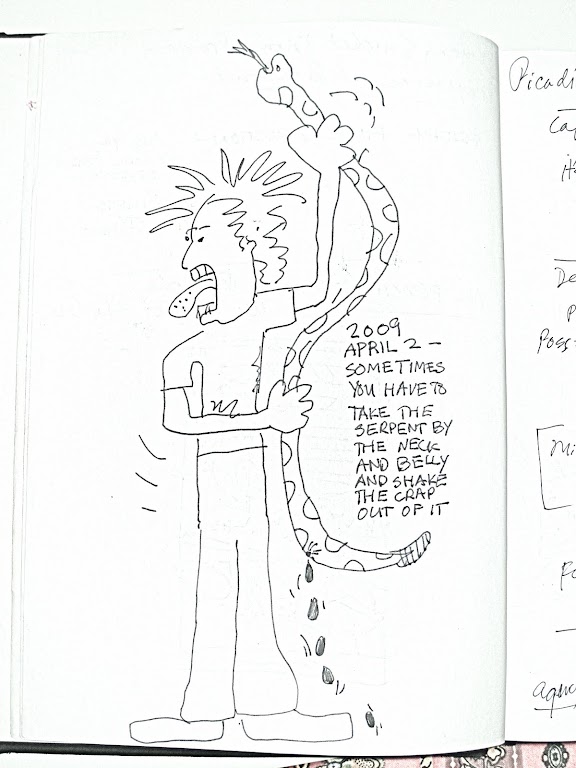 2009
APRIL 2 –
SOMETIMES
YOU HAVE TO
TAKE THE
SERPENT BY
THE NECK
AND BELLY
AND SHAKE
THE CRAP
OUT OF IT
Picadi